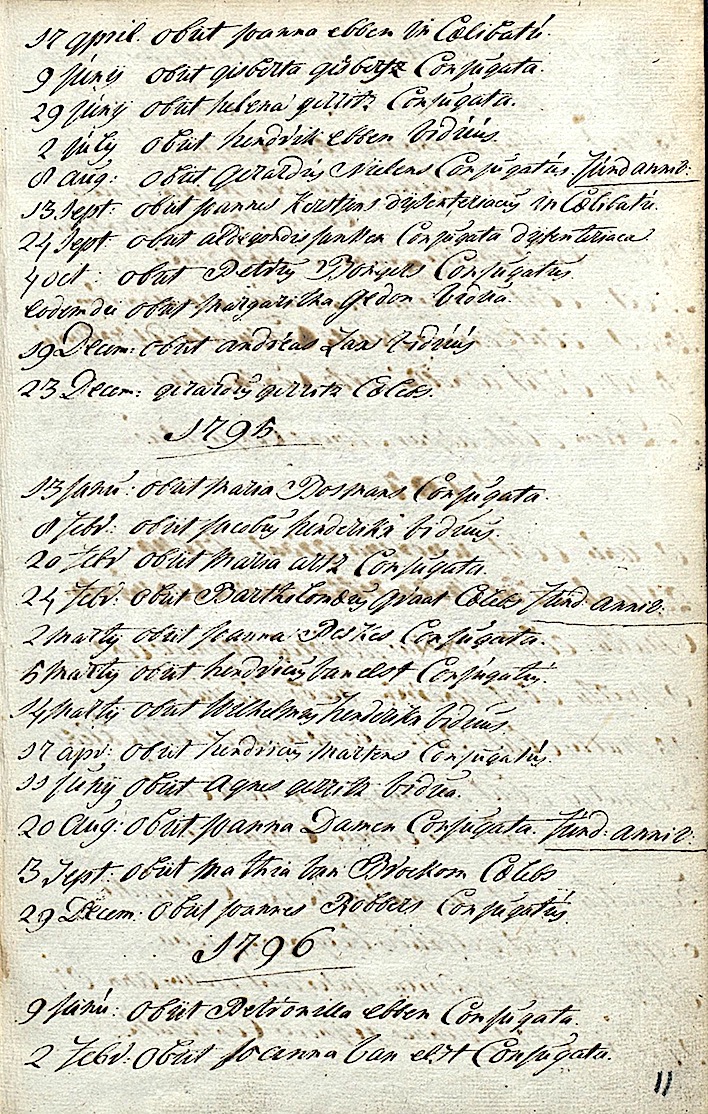 17 april: obiit joanna ebben in Cælibatú.
9 júnij obiit gisberta gisbertz Conjúgata.
29 júnij obiit helena gerritz Conjúgata.
2 júlij obiit hendrik ebben vidúús.
8 aúg: obiit Gerardús Nielens Conjúgatús fúnd anniv:
13 sept: obiit joannes Kerstjens dijsenteriacús in Cælibatú.
24 sept obiit aldegondis janssen Conjúgata dijsenteriaca
4 oct: obiit Petrús Bongers Conjúgatús
Eodem die obiit margaritha Gedon vidúa.
19 Decem: obiit andréas Jans vidúús
23 Decem: gerardús gerritz Cælebs.
1795
13 janú: obiit maria Bosmans Conjúgata.
8 febr: obiit jacobús henderikx vidúús
20 febr obiit maria artz Conjúgata.
24 febr: obiit Bartholomæús praat Cælebs fúnd anniv:
2 martij obiit joanna Peskes Conjúgata.
5 martij obiit hendricús van elst Conjúgatús.
14 martij obiit Wilhelmús henderikx vidúús
17 apr: obiit hendricús martens Conjúgatús.
11 júnij obiit Agnes gerritz vidúa.
20 Aúg: obiit joanna Damen Conjúgata. fúnd: anniv:
3 sept: obiit mathia van Broekom Cælebs
29 Decem: obiit joannes Robbers Conjúgatús
1796
9 janú: obiit Petronilla ebben Conjúgata.
2 febr: obiit joanna van elst Conjúgata.
11